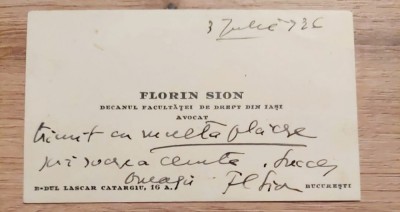 3 Iulie 936
FLORIN SION
DECANUL FACULTĂŢEI DE DREPT DIN IAŞI
AVOCAT
trimit cu multă plăcere
Succes
Omagii Fl Sion
B-DUL LASCAR CATARGIU, 16 A. BUCUREŞTI